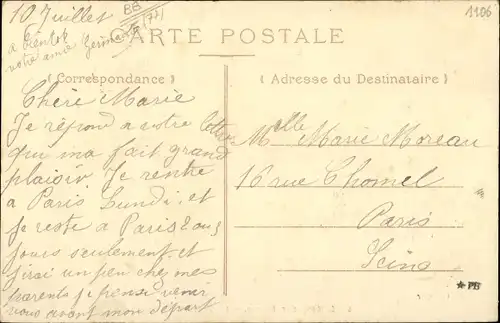 10 Juillet
a bientot
votre amie Germaine
BB
(77)
1106
CARTE POSTALE
(Correspondance)
(Adresse du Destinataire)
Chère Marie
Je répond a votre lettre
qui ma fait grand
plaisir Je rentre
a Paris Lundi, et
je reste a Paris 2 ou 3
jours seulement et
jirai un peu chez mes
parents je pense venir
vous avant mon départ
Melle Marie Moreau
16 rue Chomel
Paris
Seine
★PB